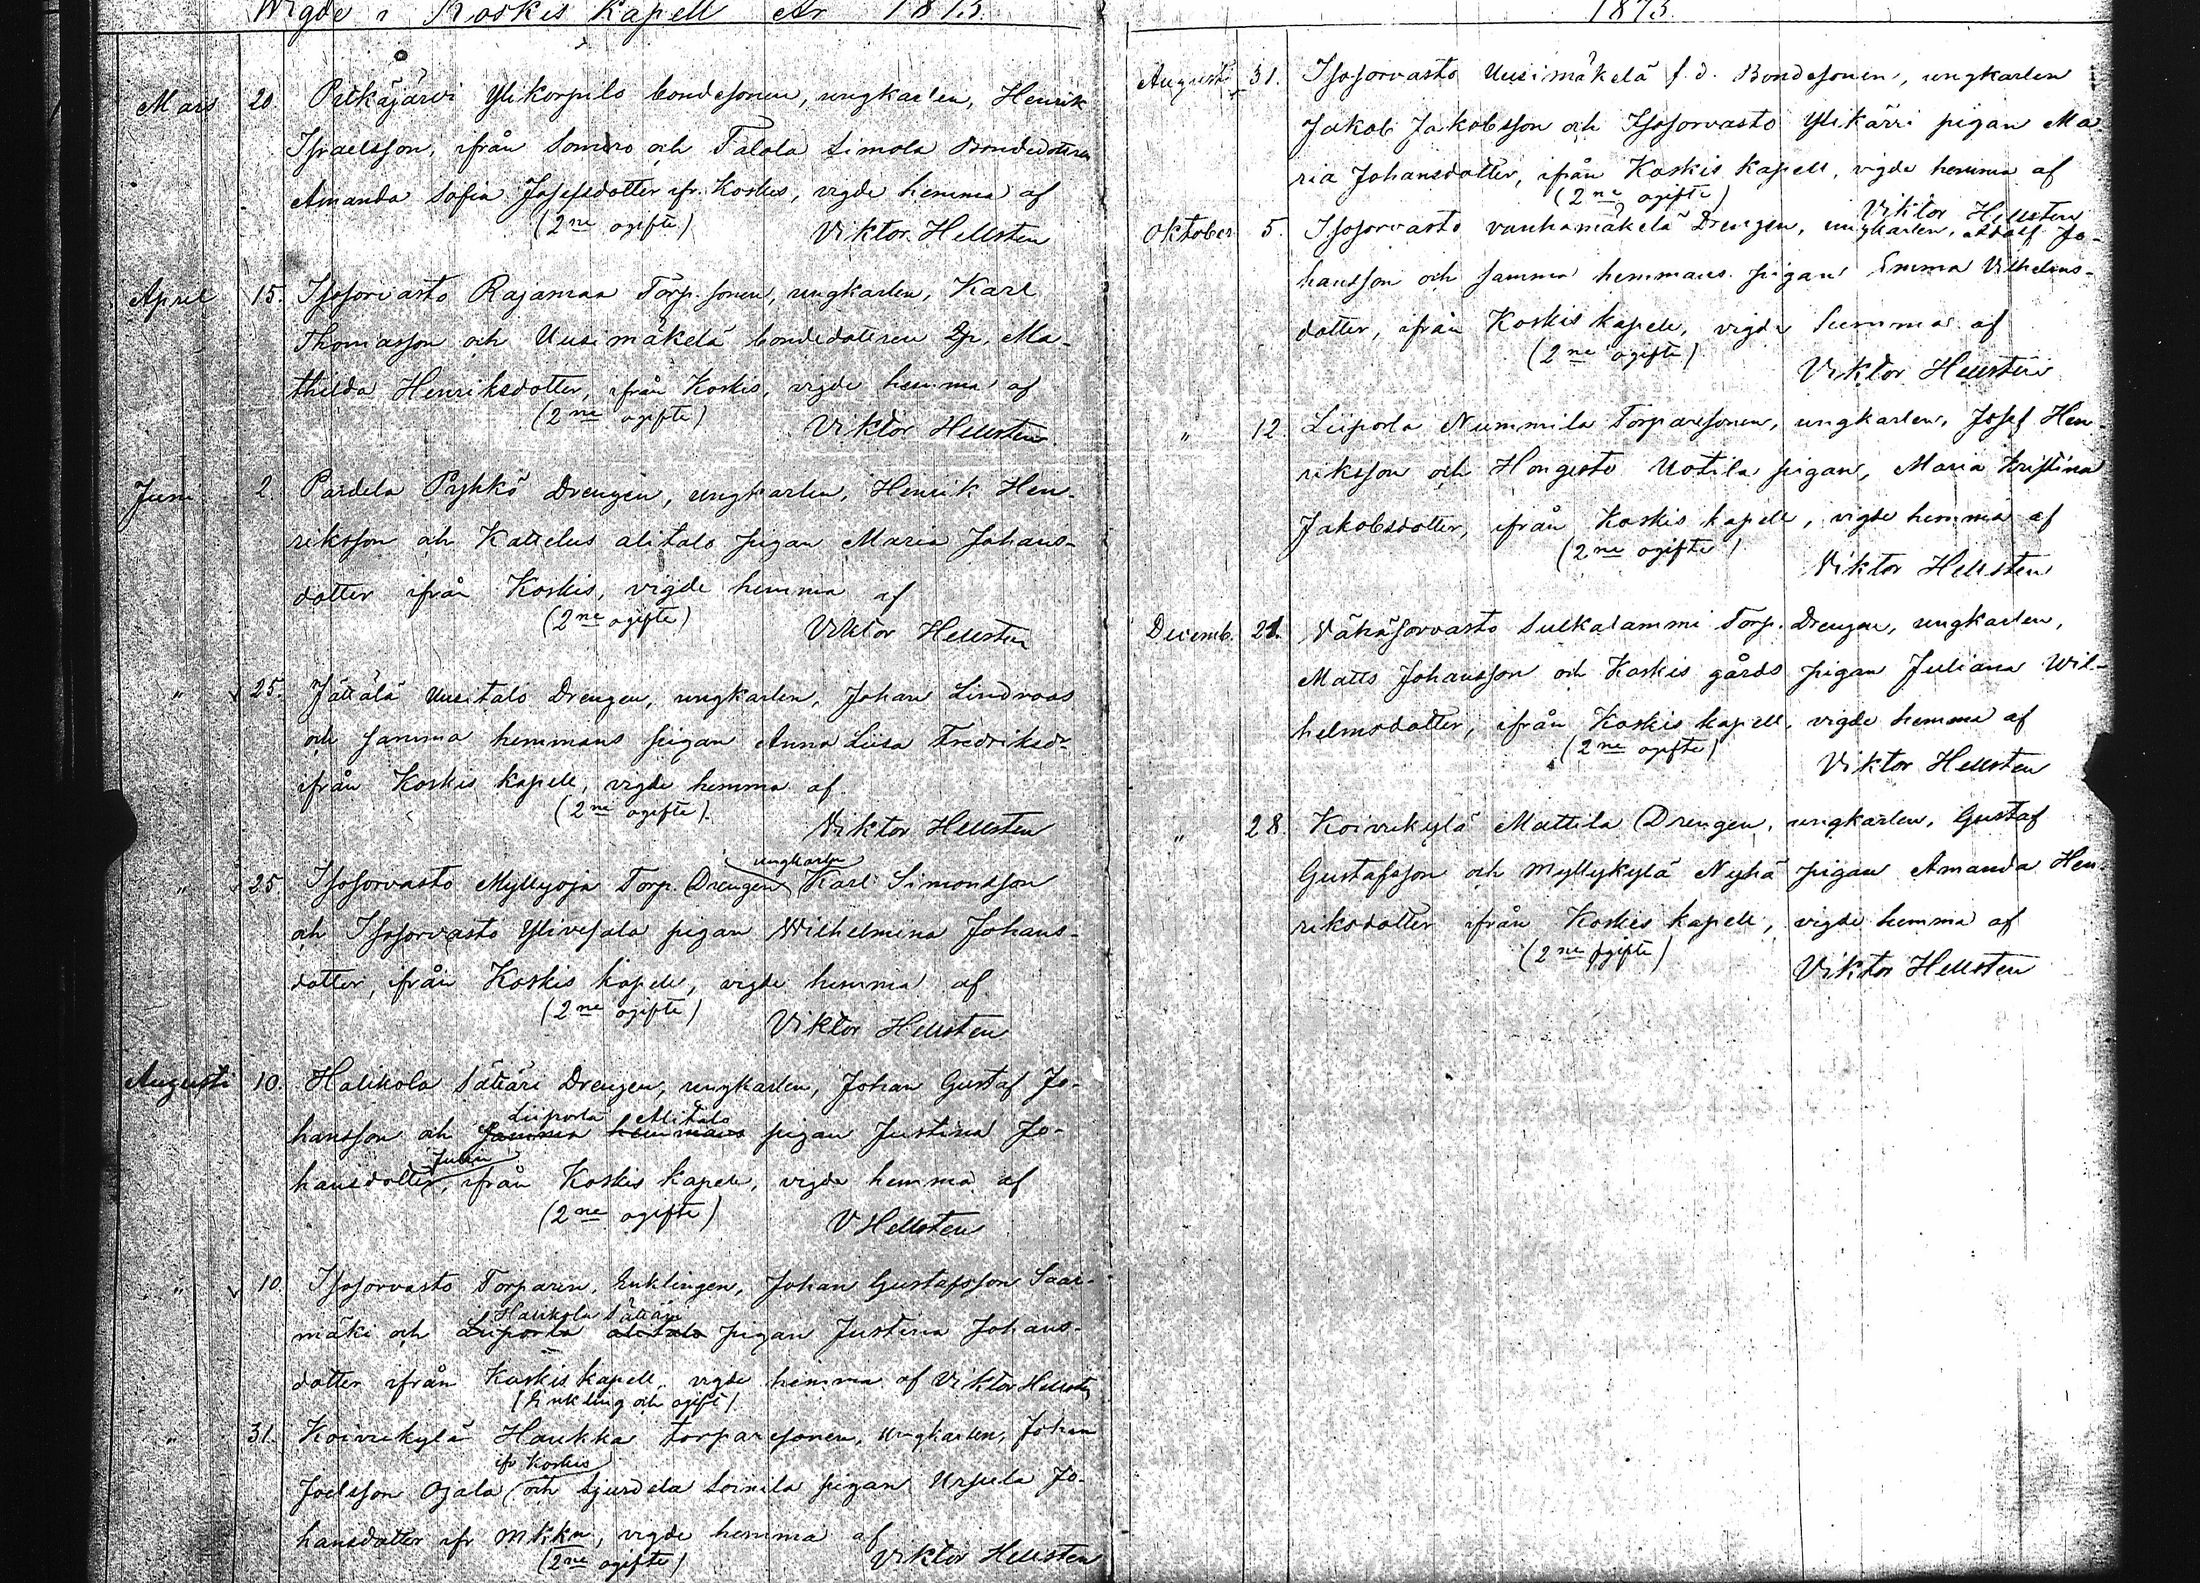 Wigde i Koskis Kapell År 1873.
Mars 20. Pitkäjärvi Ylikorpilo bondesonen, ungkarlen, Henrik
Israelsson, ifrån Somero och Talola Simola Bondedottren
Amanda Sofia Josefsdotter ifr. Koskis, vigde hemma af
(2ne ogifte) Viktor Hellsten
April 15. Isosorvasto Rajamaa Torp. sonen, ungkarlen, Karl
Thomasson och Uusimäkelä bondedottren Ma-
thilda Henriksdotter, ifrån Koskis, vigde hemma af
(2ne ogifte) Viktor Hellsten
Juni 2. Partela Pyhkö Drengen, ungkarlen, Henrik Hen-
riksson och Kattelus alitalo pigan Maria Johans-
dotter ifrån Koskis, vigde hemma af
(2ne ogifte) Viktor Hellsten
" 25. Jättälä Uusitalo Drengen, ungkarlen, Johan Lindroos
och samma hemmans pigan Anna Liisa Fredriksdr
ifrån Koskis kapell, vigde hemma af
(2ne ogifte) Viktor Hellsten
ungkarlen
" 25. Isosorvasto Myllyoja Torp. Drengen Karl Simonsson
och Isosorvasto Ylivesala pigan Wilhelmina Johans-
dotter, ifrån Koskis kapell, vigde hemma af
(2ne ogifte) Viktor Hellsten
Augusti 10. Halikola Sätäri Drengen, ungkarlen, Johan Gustaf Jo-
Liiporla Alitalo
hansson och samma hemmans pigan Justina Jo-
hansdotter, ifrån Koskis kapell, vigde hemma af
(2ne ogifte) V Hellsten
" 10. Isosorvasto Torparen, Enklingen, Johan Gustafsson Saar-
Halikola Sätäri
mäki och Liiporla alitalo pigan Justina Johans-
dotter ifrån Koskis kapell, vigde hemma af Viktor Hellsten
(Enkling och ogift)
" 31. Koivukylä Haukka torparesonen, ungkarlen, Johan
ifr Koskis
Joelsson Ojala och Sjurdela Soinila pigan Ursula Jo-
hansdotter ifr Mkkn, vigde hemma af
(2ne ogifte) Viktor Hellsten
1873.
Augusti 31. Isosorvasto Uusimäkelä f.d. Bondesonen, ungkarlen
Jakob Jakobsson och Isosorvasto Ylikärri pigan Ma-
ria Johansdotter, ifrån Koskis kapell, vigde hemma af
(2ne ogifte) Viktor Hellsten
Oktober 5. Isosorvasto vanhamäkelä Drengen, ungkarlen, Adolf Jo-
hansson och samma hemmans pigan Emma Vilhelms-
dotter, ifrån Koskis kapell, vigde hemma af
(2ne ogifte) Viktor Hellsten
" 12. Liiporla Nummila Torparesonen, ungkarlen, Josef Hen-
riksson och Hongisto Uotila pigan, Maria Kristina
Jakobsdotter, ifrån Koskis kapell, vigde hemma af
(2ne ogifte) Viktor Hellsten
Decemb. 21. Vähäsorvasto Sulkalammi Torp. Drengen, ungkarlen,
Matts Johansson och Koskis gårds pigan Juliana Wil-
helmsdotter, ifrån Koskis kapell, vigde hemma af
(2ne ogifte) Viktor Hellsten
" 28. Koivukylä Mattila Drengen, ungkarlen, Gustaf
Gustafsson och Myllykylä Nyhä pigan Amanda Hen-
riksdotter ifrån Koskis kapell, vigde hemma af
(2ne ogifte) Viktor Hellsten